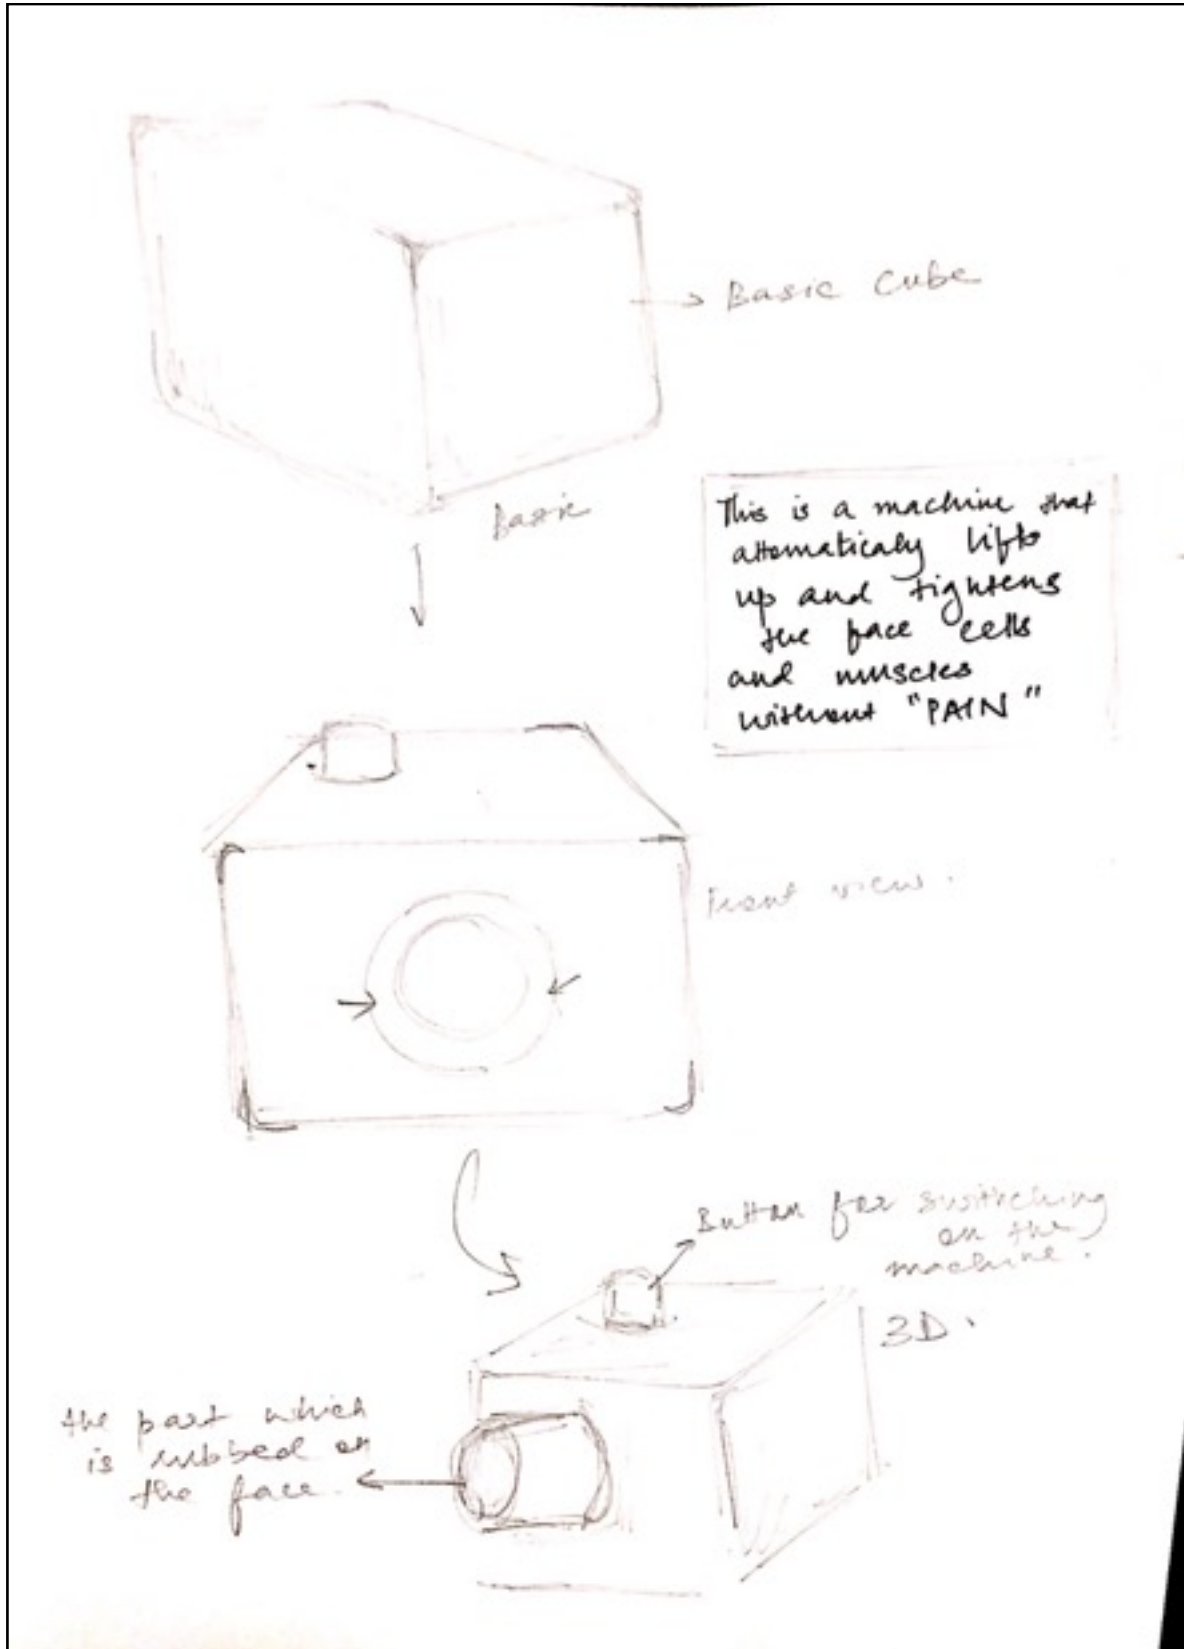 Basic Cube
Basic
This is a machine that
attomaticaly lifts
up and tightens
the face cells
and muscles
without "PAIN"
Front view.
Button for switching
on the
machine.
3D.
the part which
is rubbed on
the face.